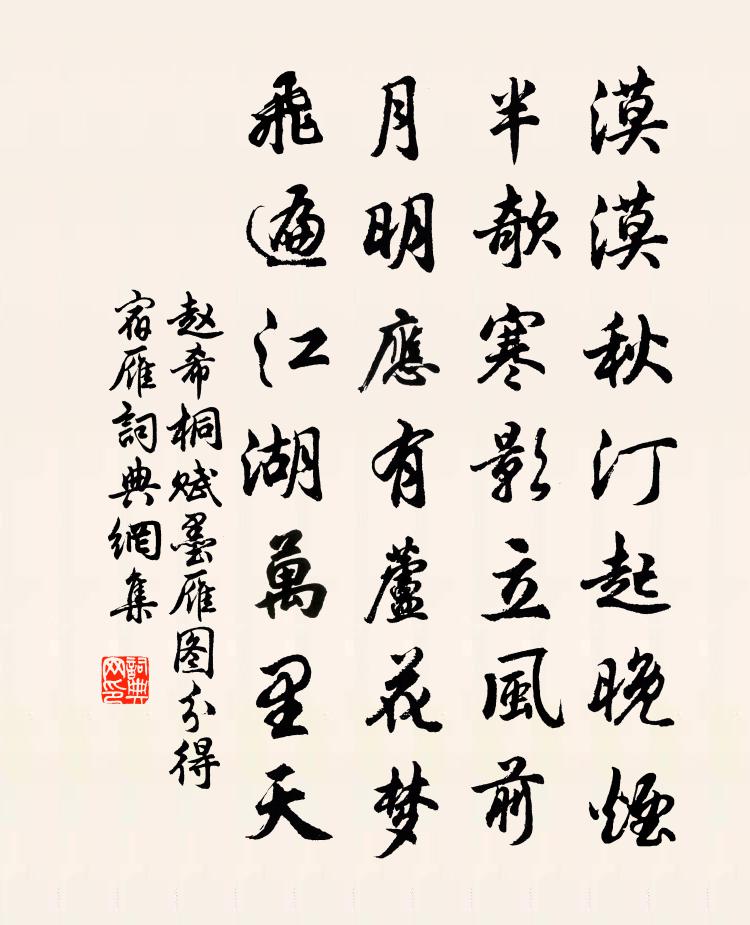 漠漠秋汀起晚煙
半欹寒影立風前
月明應有蘆花梦
飛遍江湖萬里天
赵希桐赋墨雁图分得
宿雁詞典網集
詞典
网印